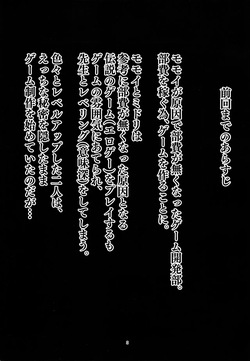 前回までのあらすじ
モモイが原因で部費が無くなったゲーム開発部。
部費を稼ぐ為、ゲームを作ることに。
モモイとミドリは
参考に部費が無くなった原因となる
伝説のゲーム(エロゲー)をプレイするも
ゲームの雰囲気にあてられ、
先生とレベリング(意味深)をしてしまう。
色々とレベルアップした二人は、
えっちな秘密を隠したまま
ゲーム制作を始めていたのだが…
8